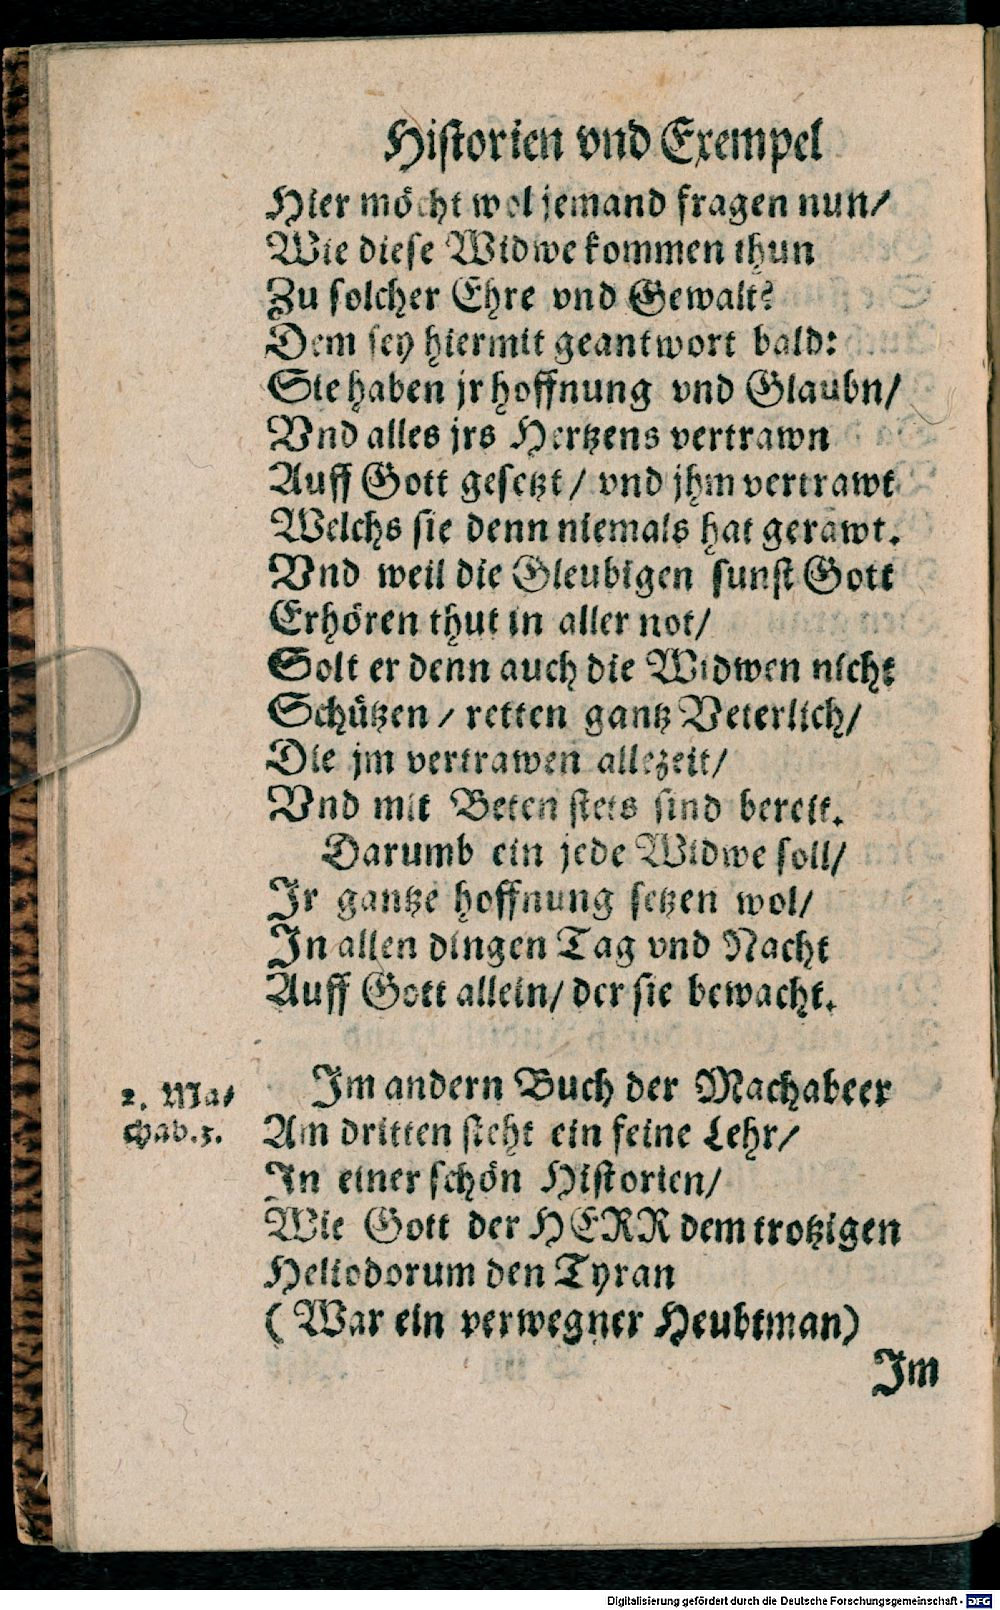 Historien vnd Exempel
Hier möcht wol jemand fragen nun/
Wie diese Widwe kommen thun
Zu solcher Ehre vnd Gewalt?
Dem sey hiermit geantwort bald:
Sie haben jr hoffnung vnd Glaubn/
Vnd alles jrs Hertzens vertrawn
Auff Gott gesetzt/ vnd jhm vertrawt
Welchs sie denn niemals hat gerawt.
Vnd weil die Gleubigen sunst Gott
Erhören thut in aller not/
Solt er denn auch die Widwen nicht
Schützen/ retten gantz Veterlich/
Die jm vertrawen allezeit/
Vnd mit Beten stets sind bereit.
Darumb ein jede Widwe soll/
Ir gantze hoffnung setzen wol/
In allen dingen Tag vnd Nacht
Auff Gott allein/ der sie bewacht.
2. Ma/
chab.3.
Im andern Buch der Machabeer
Am dritten steht ein feine Lehr/
In einer schön Historien/
Wie Gott der HERR dem trotzigen
Heliodorum den Tyran
(War ein verwegner Heubtman)
Im
Digitalisierung gefördert durch die Deutsche Forschungsgemeinschaft - DFG